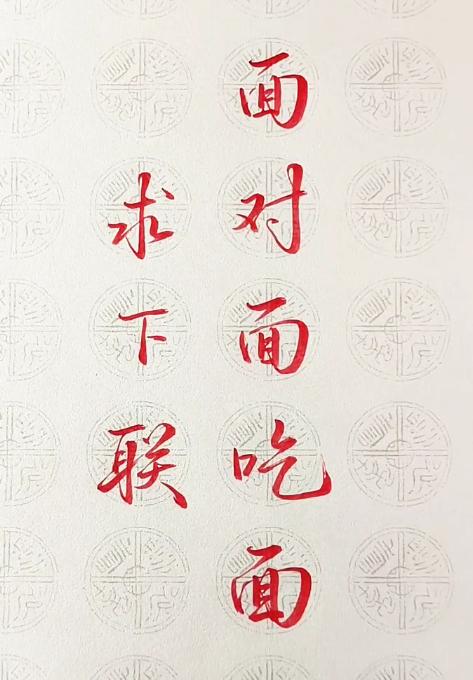 面对面吃面
求下联